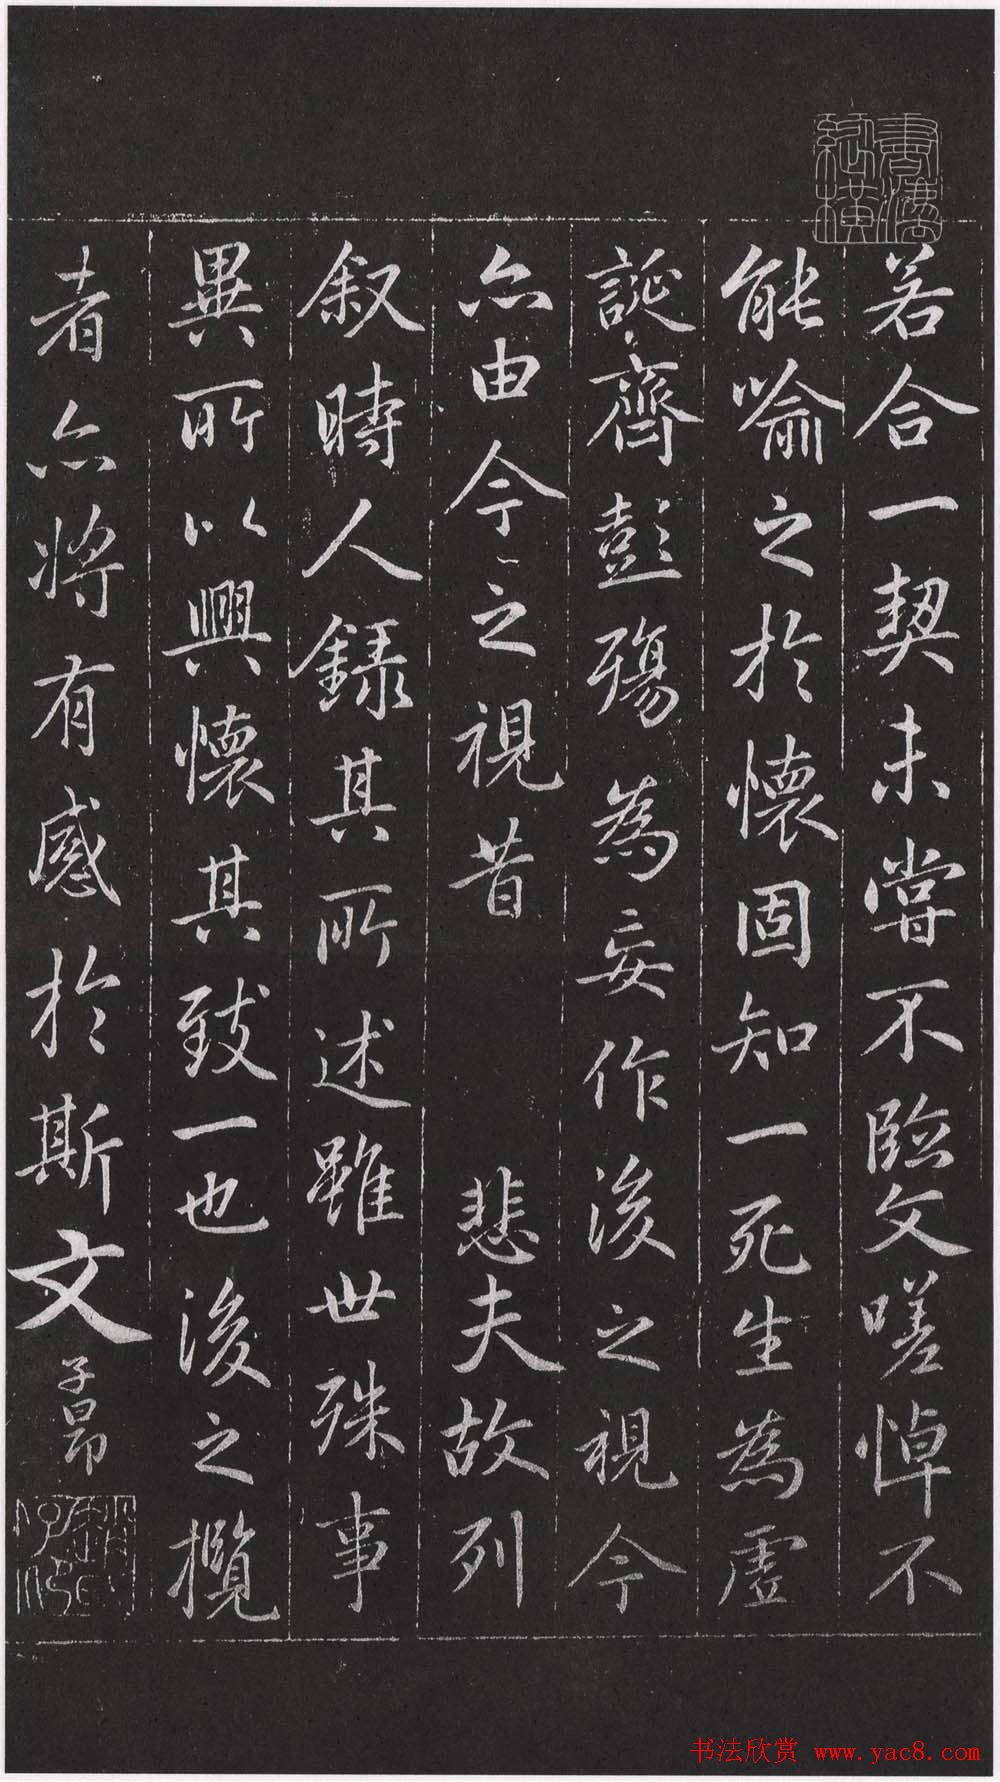 若合一契未嘗不臨文嗟悼不
能喻之於懷固知一死生為虛
誕齊彭殤為妄作後之視今
亦由今之視昔 悲夫故列
叙時人錄其所述雖世殊事
異所以興懷其致一也後之攬
者亦將有感於斯文
子昂
書法欣赏 www.yac8.com